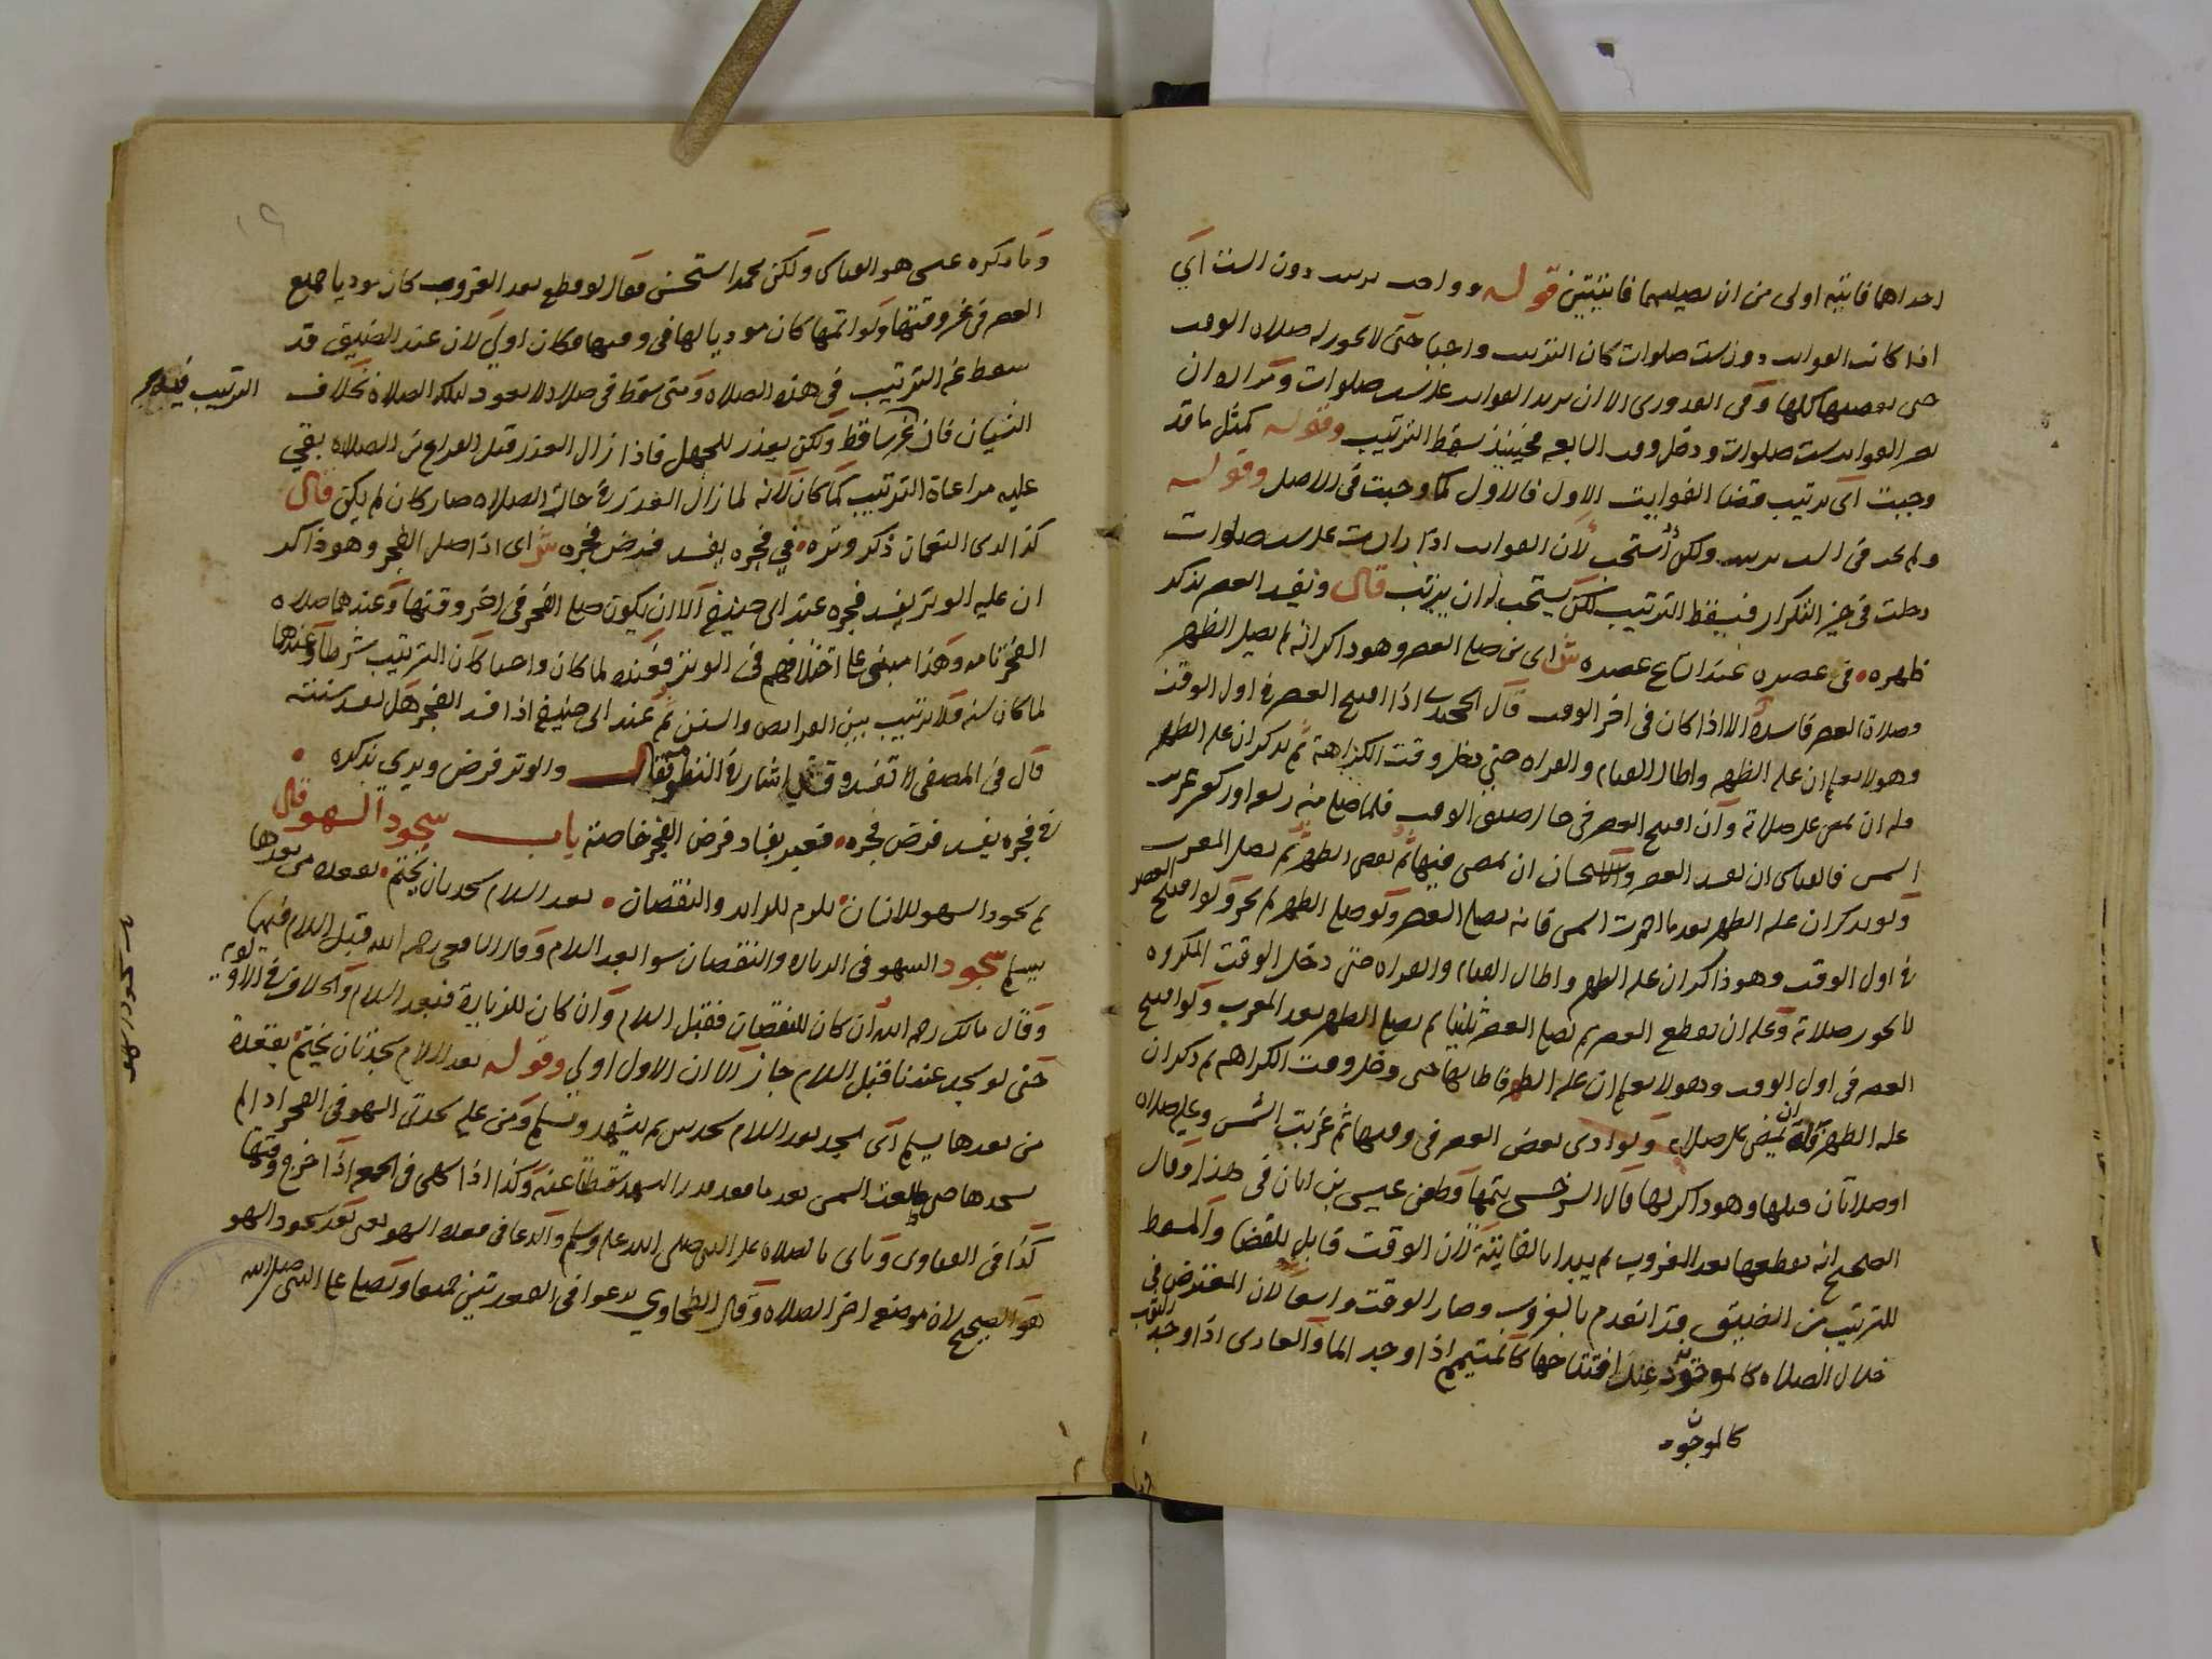 احداهما فايتة اولى من ان يصليهما فايتتين قوله وواجب ترتيب دون الست اي
اذا كانت الفوايت دون ست صلوات كان الترتيب واجبا حتى لا يجوز له صلاة الوقت
حتى يقضيها كلها وفي القدوري الا ان يزيد الفوايت على ست صلوات ومراده ان
تصير الفوايت ست صلوات ودخل وقت السابعة فحينئذ سقط الترتيب وقوله كمثل ما قد
وجبت اي ترتيب قضا الفوايت الاول فالاول كما وجبت في الاصل وقوله
ولم يجد في الست ترتيب ولكن أستحب لان الفوايت اذا زادت على ست صلوات
دخلت في حيز التكرار فيسقط الترتيب لكن يستحب له ان يرتب قال ونفسد العصر بذكر
ظهره في عصره عند اتساع عصره ش اى من صلى العصر وهو ذاكر انه لم يصل الظهر
وصلاة العصر فاسدة الا اذا كان في اخر الوقت قال الخجندي اذا افتتح العصر في اول الوقت
وهو لا يعلم ان عليه الظهر واطال القيام والقراة حتى دخل وقت الكراهة ثم تذكر ان عليه الظهر
فله ان يمضي على صلاته وان افتتح العصر في حال ضيق الوقت فلما صلى منه ركعة او ركعتين غربت
الشمس فالقياس ان تفسد العصر والاستحسان ان يمضي فيها ثم يقضي الظهر ثم يصلي المغرب
ولو تذكر ان عليه الظهر بعد ما احمرت الشمس فانه يصلي العصر ولو صلى الظهر لم يجز ولو افتتح العصر
في اول الوقت وهو ذاكر ان عليه الظهر واطال القيام والقراة حتى دخل الوقت المكروه
لا تجوز صلاته وعليه ان يقطع العصر ثم يصلي العصر ثانيا ثم يصلي الظهر بعد المغرب ولو افتتح
العصر في اول الوقت وهو لا يعلم ان عليه الظهر فاطالها حتى دخل وقت الكراهة ثم ذكر ان
عليه الظهر فله ان يمضي على صلاته ولو ادى بعض العصر في وقتها ثم غربت الشمس وعليه صلاة
او صلاتان قبلها وهو ذاكر لها قال السرخسي يتمها وطعن عيسى بن ابان في هذا وقال
الصحيح انه يقطعها بعد الغروب ثم يبدا بالفايتة لان الوقت قابل للقضا والمسقط
للترتيب من الضيق قد انعدم بالغروب وصار الوقت واسعا لان المعترض في
خلال الصلاة كالموجود عند افتتاحها كالمتيمم اذا وجد الما والعاري اذا وجد الثوب
كالموجود
وما ذكره عيسى هو القياس ولكن محمدا استحسن فقال لو قطع بعد الغروب كان موديا جميع
العصر في غير وقتها ولو اتمها كان موديا لها في وقتها فكان اولى لان عند الضيق قد
سقط عنه الترتيب في هذه الصلاة ومتى سقط في صلاة لا يعود لتلك الصلاة بخلاف
الترتيب فيه
النسيان فان غير ساقط ولكن يعذر للجهل فاذا زال العذر قبل الفراغ من الصلاة بقي
عليه مراعاة الترتيب كما كان لانه لما زال العذر في حال الصلاة صار كان لم يكن قال
كذا لدى النعمان ذكر وتره في فجره يفسد فرض فجره ش اى اذا صلى الفجر وهو ذاكر
ان عليه الوتر يفسد فجره عند ابي حنيفة الا ان يكون صلى الفجر في اخر وقتها وعندهما صلاة
الفجر تامة وهذا مبني على اختلافهم في الوتر فعنده لما كان واجبا كان الترتيب شرطا وعندهما
لما كان سنة فلا ترتيب بين الفرايض والسنن ثم عند ابي حنيفة اذا فسد الفجر هل تفسد سنته
قال في المصفى لا تفسد وقيل اشارة النظم فقال والوتر فرض ويرى بذكره
في فجره يفسد فرض فجره فتعبر بفساد فرض الفجر خاصة باب سجود السهو قال
ثم سجود السهو للانسان يلزم للزايد والنقصان بعد السلام سجدتان يختم بقعدة من بعدها
يسلم سجود السهو في الزيادة والنقصان سوا بعد السلام وقال الشافعي رحمه الله قبل السلام فيهما
وقال مالك رحمه الله ان كان للنقصان فقبل السلام وان كان للزيادة فبعد السلام والخلاف في الاولوية
حتى لو سجد عندنا قبل السلام جاز الا ان الاول اولى وقوله بعد السلام سجدتان يختم بقعدة
من بعدها يسلم اي يسجد بعد السلام سجدتين ثم يتشهد ويسلم ومن عليه سجدتى السهو في الفجر اذا لم
يسجدها حتى طلعت الشمس بعد ما قعد قدر التشهد سقطتا عنه وكذا اذا سهى في الجمعة اذا خرج وقتها
كذا في الفتاوى وياتى بالصلاة على النبي صلى الله عليه وسلم والدعا في قعدة السهو يعني بعد سجود السهو
هو الصحيح لان موضعه اخر الصلاة وقال الطحاوي يدعوا في القعدتين جميعا ويصلي على النبي صلى الله